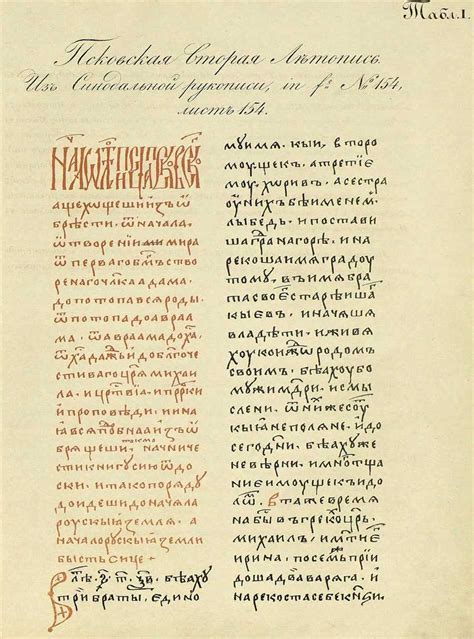 Табл. I.
Псковская Вторая Лѣтопись.
Изъ Синодальной рукописи, in fº № 154,
листъ 154.
ащехощешиихъѡ
брѣсти. ѿначала
ѿтворениимира
ѿпервагобытьство
реначл҃кадама.
допотопавсяроды
ѿпотопадоавраа
ма. ѿавраамадох҃а.
ѿх҃адажьидоблагоче
стивагоцр҃ямиха
ла. ицр҃твиа. ипр҃рки
ипроповѣди. иина
брящеши. начниче
стикнигусиюѿдо
ски. итакопоряду
доидешидоначяла
роускыяземля. а
началорускыяземли
бытьсице
трибраты. едино
муимя. кыи, второ
моу. щекъ. атретіе
моу. хоривъ. асестра
оунихъбѣименемъ
лыбедь. ипостави
шаграднагорѣ. ина
рекошаимяградоу
томоу. въимябра
тасвоегстарѣиша
кыевъ. иначяша
владѣти. иживя
хоукоиждородомъ
своимъ. бѣахоубо
мужимудри. исмы
слени. ѿнихжесоу
кыянеполяне. идо
сегодни. бѣахуже
невѣрни. имнотща
ниеимоущекъидо
ломъ. втажевремя
набывъгрекоцр҃ь.
михаилъ. имт҃иег
ирина. посемъпріи
дошадваваряга. и
наректастасебекн҃зи.